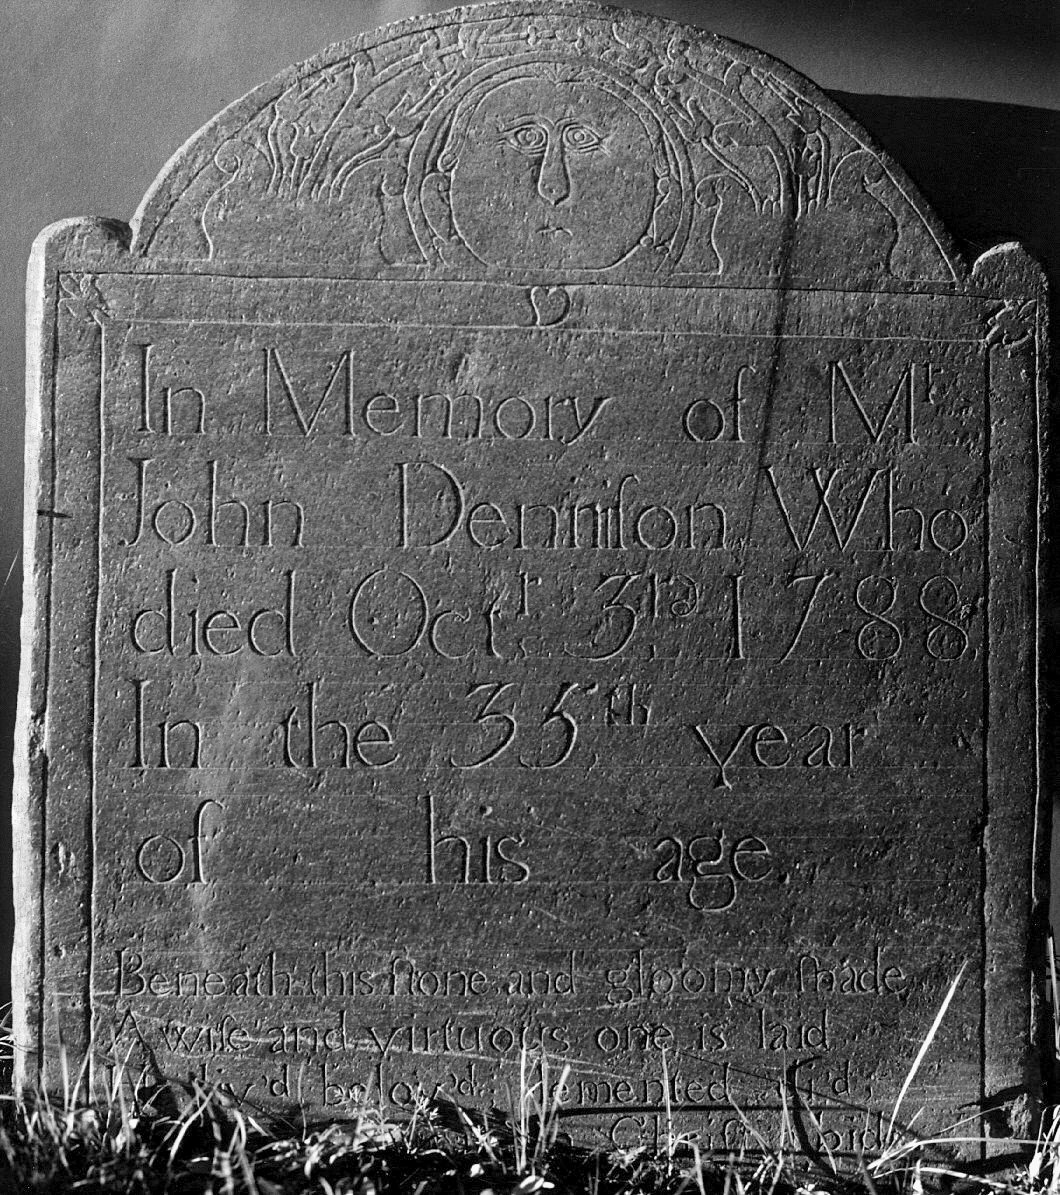 In Memory of Mr
John Denniſon Who
died Octr 3rd 1788
In the 35th year
of his age.
Beneath this ſtone and gloomy ſhade
A wiſe and virtuous one is laid
liv'd belov'd lemented